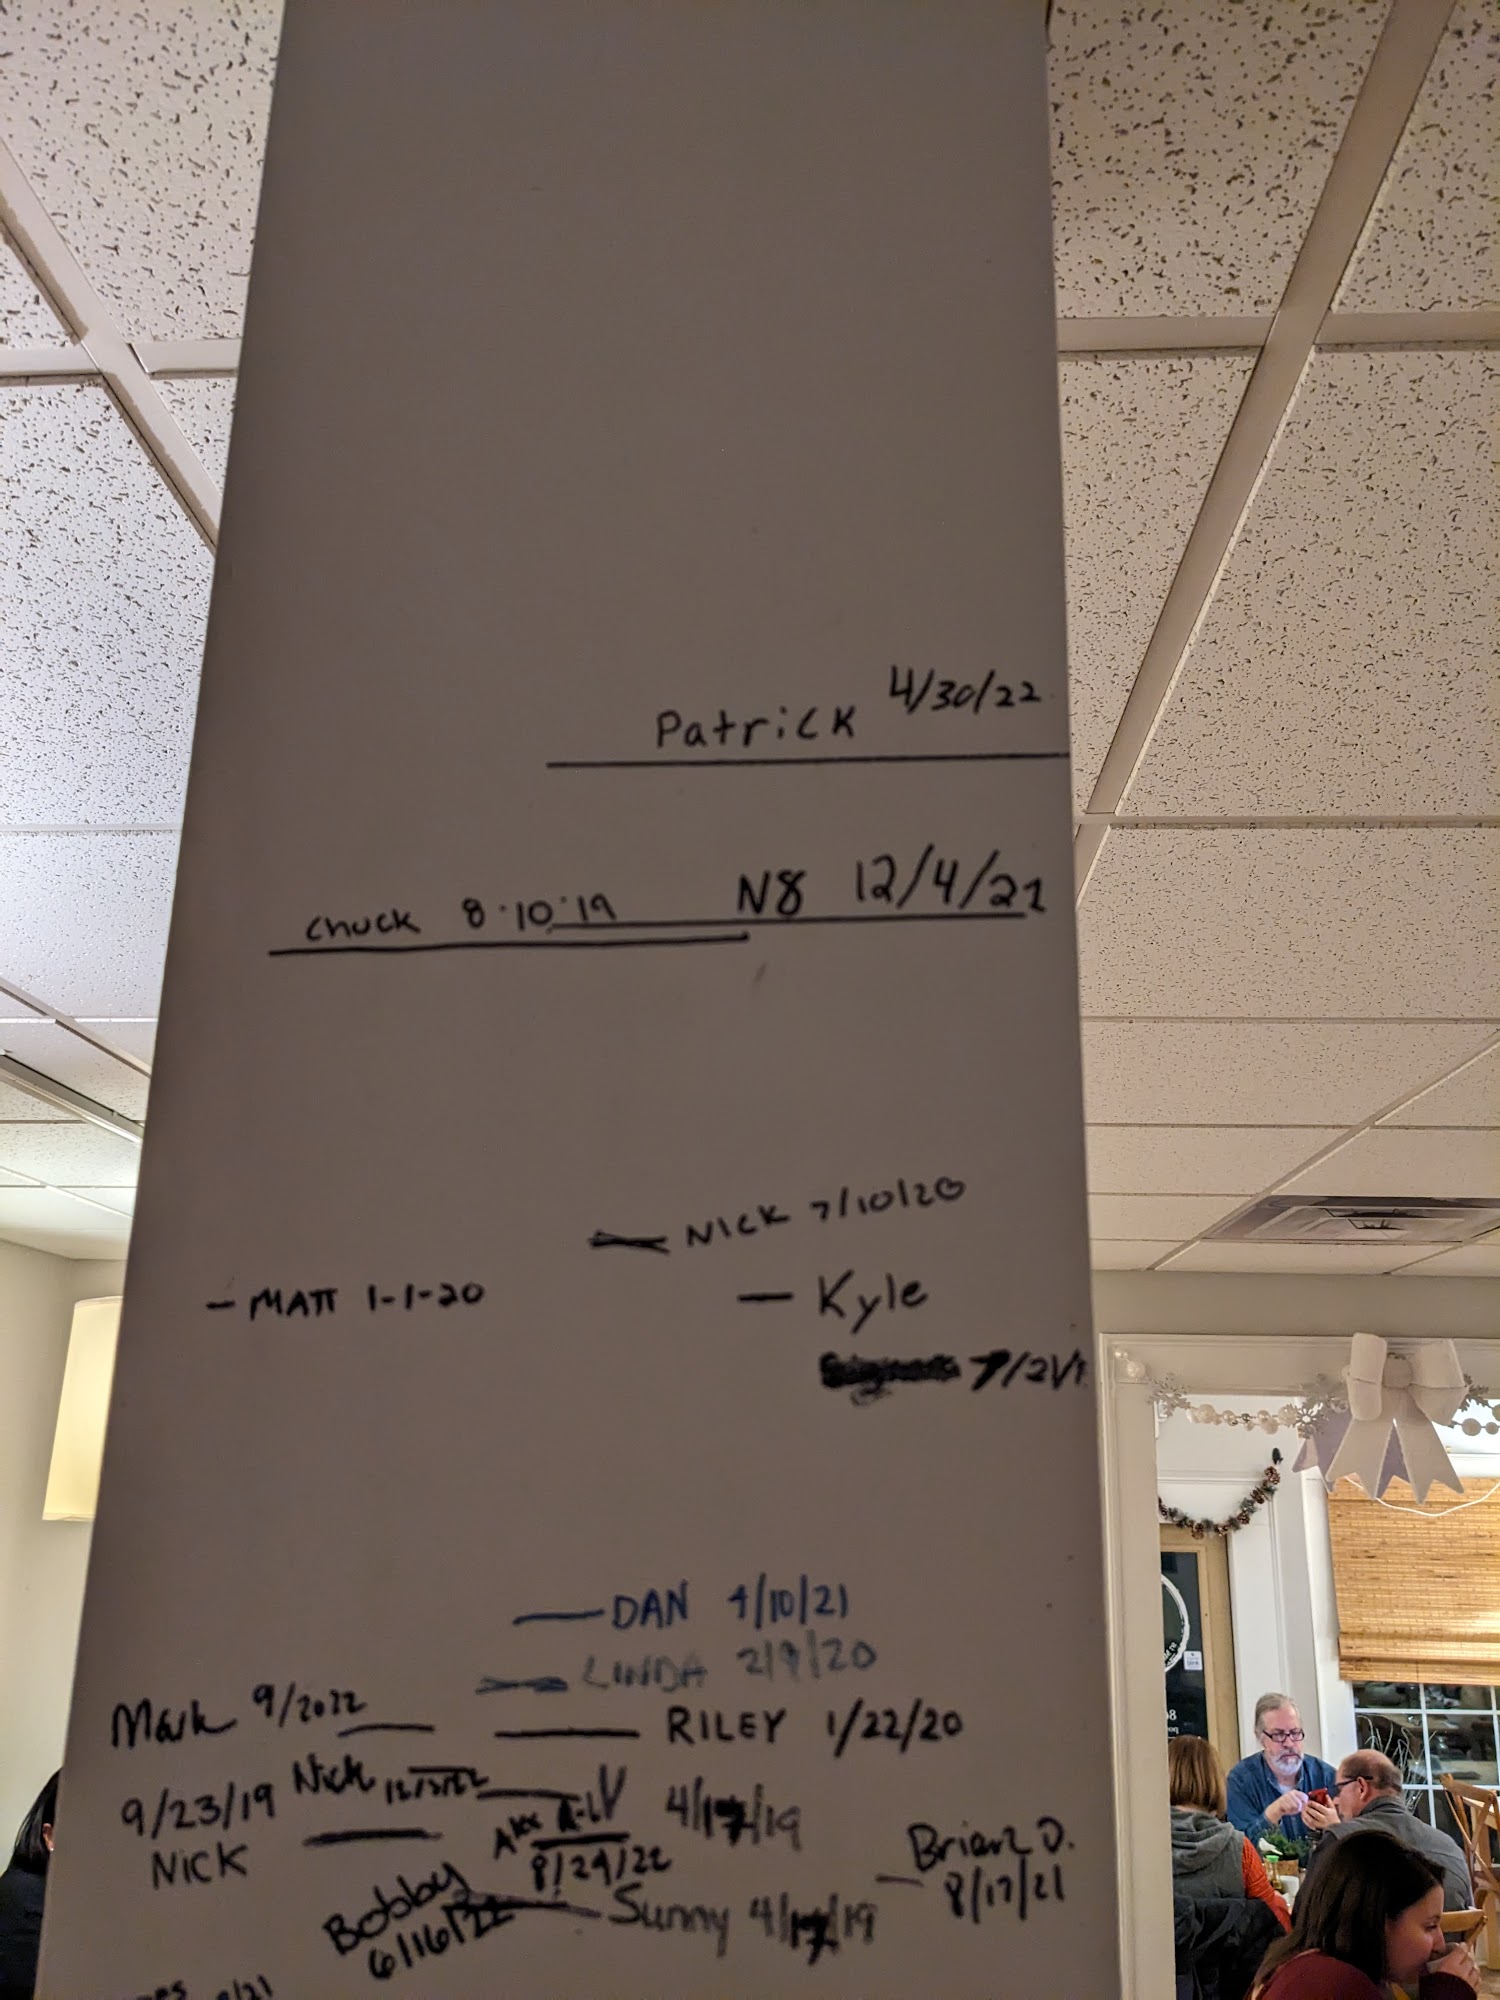 Patrick 4/30/22
Chuck 8·10·19
N8 12/4/21
NICK 7/10/20
- MATT 1-1-20
- Kyle
7/21/1
DAN 4/10/21
LINDA 2/9/20
Mark 9/2022
RILEY 1/22/20
9/23/19
NICK
Nick
4/17/19
8/29/22
Bobby
6/16/22
Sunny 4/17/19
Brian D.
8/17/21